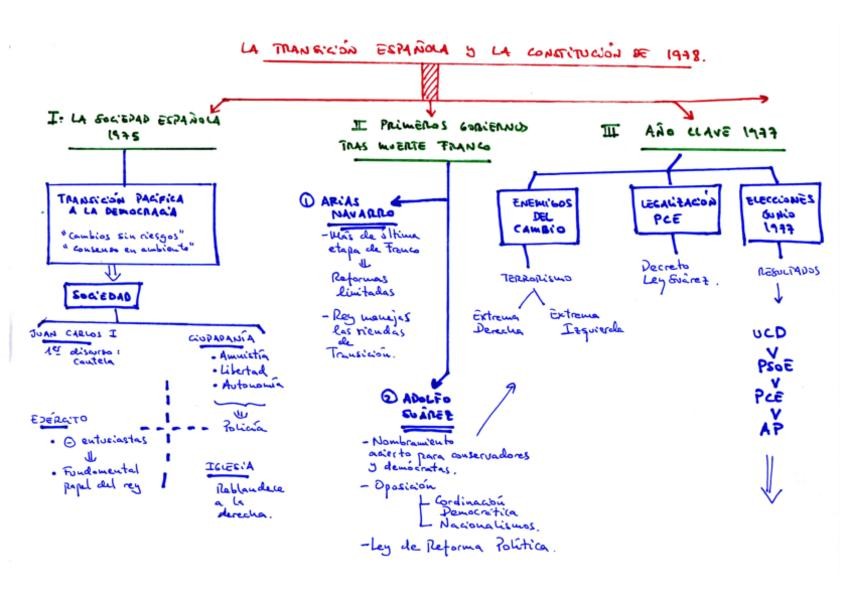 LA TRANSICIÓN ESPAÑOLA Y LA CONSTITUCIÓN DE 1978.
I: LA SOCIEDAD ESPAÑOLA
1975
TRANSICIÓN PACÍFICA
A LA DEMOCRACIA
"cambios sin riesgos"
"consenso en ambiente"
SOCIEDAD
JUAN CARLOS I
1er discurso:
cautela
CIUDADANÍA
• Amnistía
• Libertad
• Autonomía
Policía
EJÉRCITO
• ⊖ entusiastas
• Fundamental
papel del rey
IGLESIA
Reblandece
a la
derecha.
II PRIMEROS GOBIERNOS
TRAS MUERTE FRANCO
① ARIAS
NAVARRO
- Más de última
etapa de Franco
Reformas
limitadas
- Rey manejas
las riendas
de
Transición.
② ADOLFO
SUÁREZ
- Nombramiento
acierto para conservadores
y demócratas.
- Oposición
Cordinación
Democrática
Nacionalismos.
- Ley de Reforma Política.
III AÑO CLAVE 1977
ENEMIGOS
DEL
CAMBIO
TERRORISMO
Extrema
Derecha
Extrema
Izquierda
LEGALIZACIÓN
PCE
Decreto
Ley Suárez.
ELECCIONES
JUNIO
1977
RESULTADOS
UCD
V
PSOE
V
PCE
V
AP